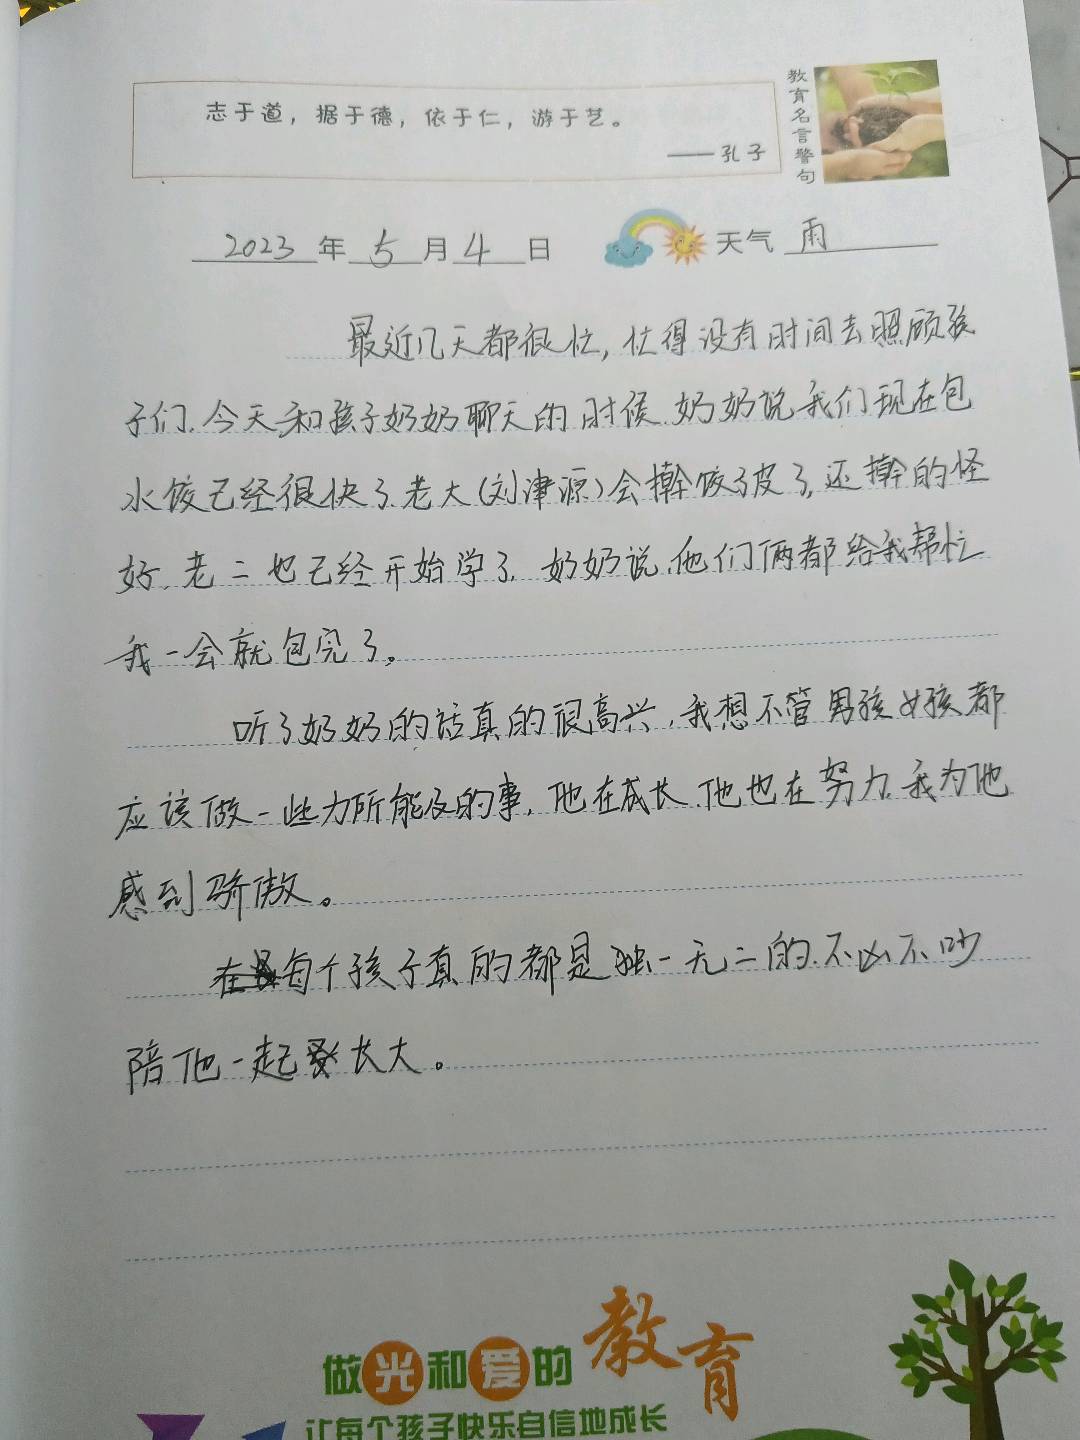 志于道，据于德，依于仁，游于艺。
——孔子
教育名言警句
2023年5月4日 天气 雨
最近几天都很忙，忙得没有时间去照顾孩
子们.今天和孩子奶奶聊天的时候.奶奶说我们现在包
水饺已经很快了.老大(刘津源)会擀饺子皮了,还擀的怪
好.老二也已经开始学了.奶奶说.他们俩都给我帮忙
我一会就包完了。
听了奶奶的话真的很高兴.我想不管男孩女孩都
应该做一些力所能及的事.他在成长.他也在努力.我为他
感到骄傲。
每个孩子真的都是独一无二的.不凶不吵
陪他一起长大。
做光和爱的教育
让每个孩子快乐自信地成长